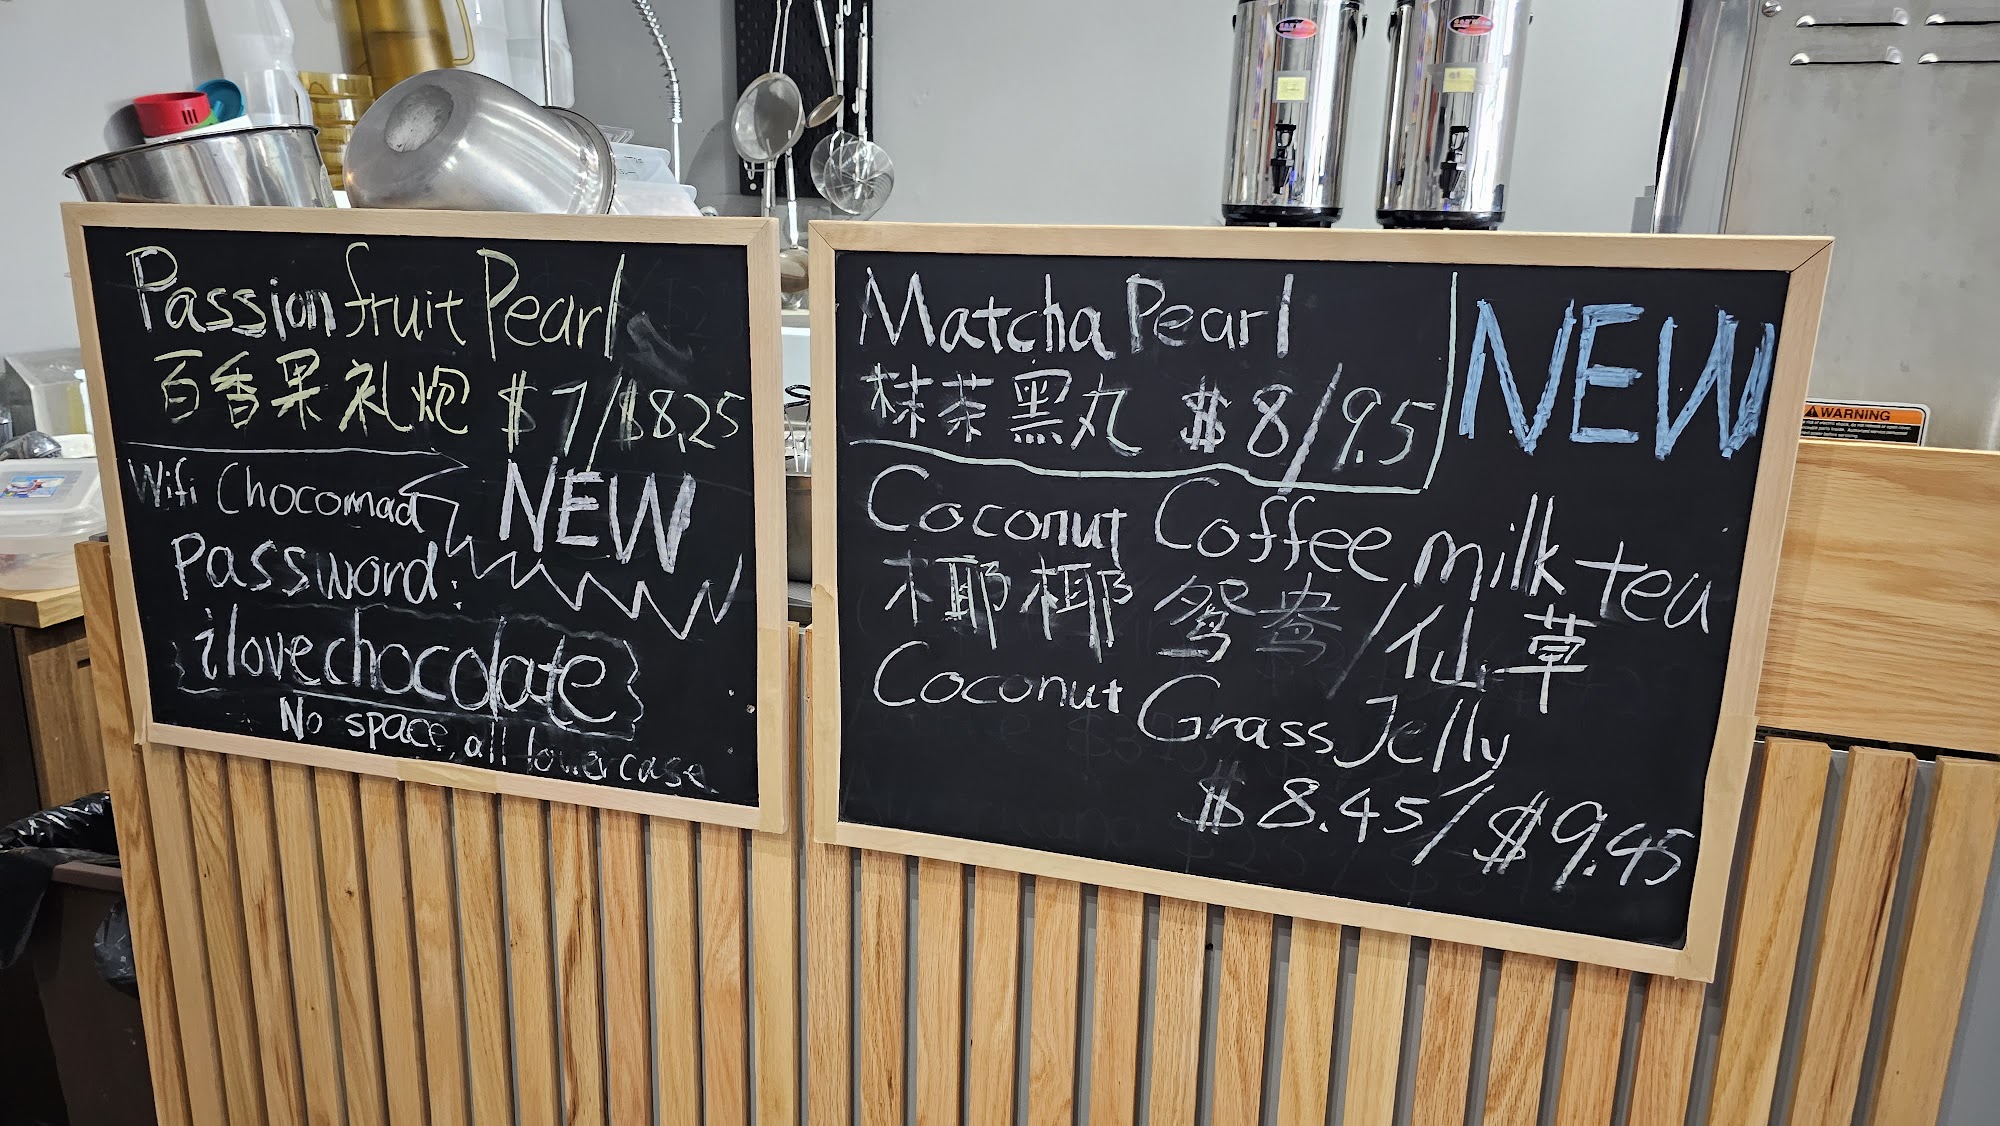 Passionfruit Pearl
百香果礼炮 $7/$8.25
Wifi Chocomad
NEW
Password:
ilovechocolate
No space, all lowercase
Matcha Pearl
NEW
抹茶黑丸 $8/9.5
Coconut Coffee milk tea
椰椰鸳鸯/仙草
Coconut Grass Jelly
$8.45/$9.45
WARNING